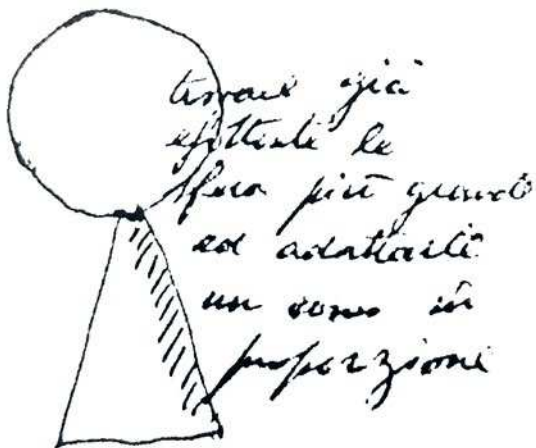 trovare già
effettuate le
sfera più grande
ed adattarle
un cono in
proporzione